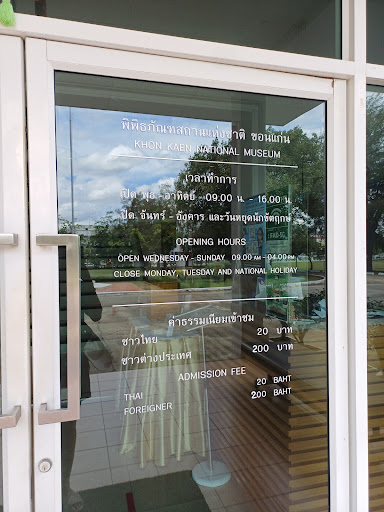 พิพิธภัณฑสถานแห่งชาติ ขอนแก่น
KHON KAEN NATIONAL MUSEUM
เวลาทำการ
เปิด พุธ - อาทิตย์ 09.00 น. - 16.00 น.
ปิด จันทร์ - อังคาร และวันหยุดนักขัตฤกษ์
OPENING HOURS
OPEN WEDNESDAY - SUNDAY 09.00 AM - 04.00 PM
CLOSE MONDAY, TUESDAY AND NATIONAL HOLIDAY
ค่าธรรมเนียมเข้าชม
ชาวไทย 20 บาท
ชาวต่างประเทศ 200 บาท
ADMISSION FEE
THAI 20 BAHT
FOREIGNER 200 BAHT